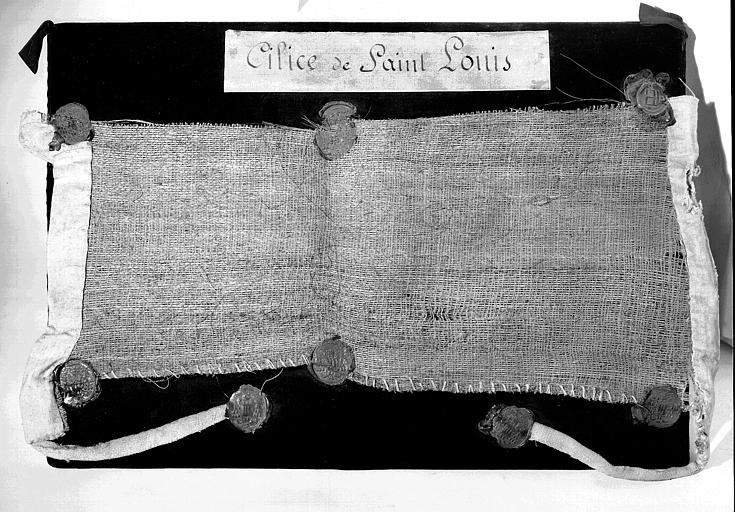 Cilice de Saint Louis